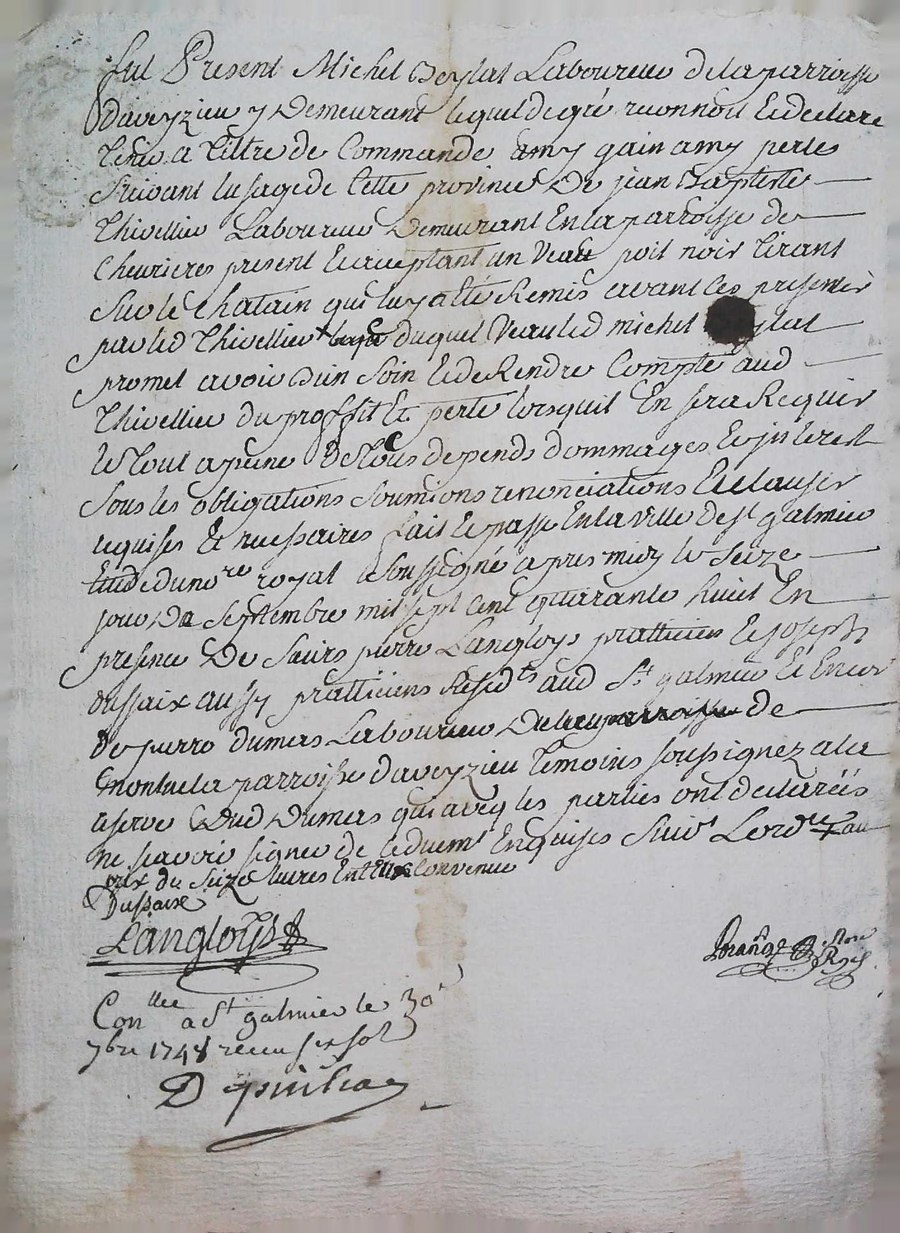 fut Present Michel Deylat Laboureur de la parroisse
Daveyzieu y Demeurant lequel de gré reconnoit et declare
tenir a tiltre de Commande amy gain amy perte
suivant lusage de Cette province De jean Baptiste
thivellier Laboureur Demeurant En la parroisse de
Chevrieres present Et acceptant un Veau poil noir tirant
sur le Chatain qui luy a esté Remis avant Ces presentes
par led thivellier duquel Veau led michel ylat
promet avoir Bien Soin Et de Rendre Compte aud
thivellier du proffit Et perte lorsquil En sera Requis
le tout a peine De tous depends dommages Et jnterest
sous les obligations soumions renonciations Et clauses
requises Et necessaires fait Et passé En la ville de st galmier
Etude du nore royal soussigné apres midy le seize
jour De Septembre mil sept cent quarante huit En
presence De sieurs pierre Langloys pratticien Et joseph
dussaix aussy pratticiens Residts aud st galmier Et Encor
de pierre dumas Laboureur de
la parroisse daveyzieu temoins soussignez a la
reserve Dud Dumas qui avec les parties ont declarées
ne scavoir signer de ce duemt Enquises suivt Lordce au
prix de seize livres Entre Convenue
Dussaix
Langloys
nore Roy
Conllee a St galmier le 30e
7bre 1748 recu six sol